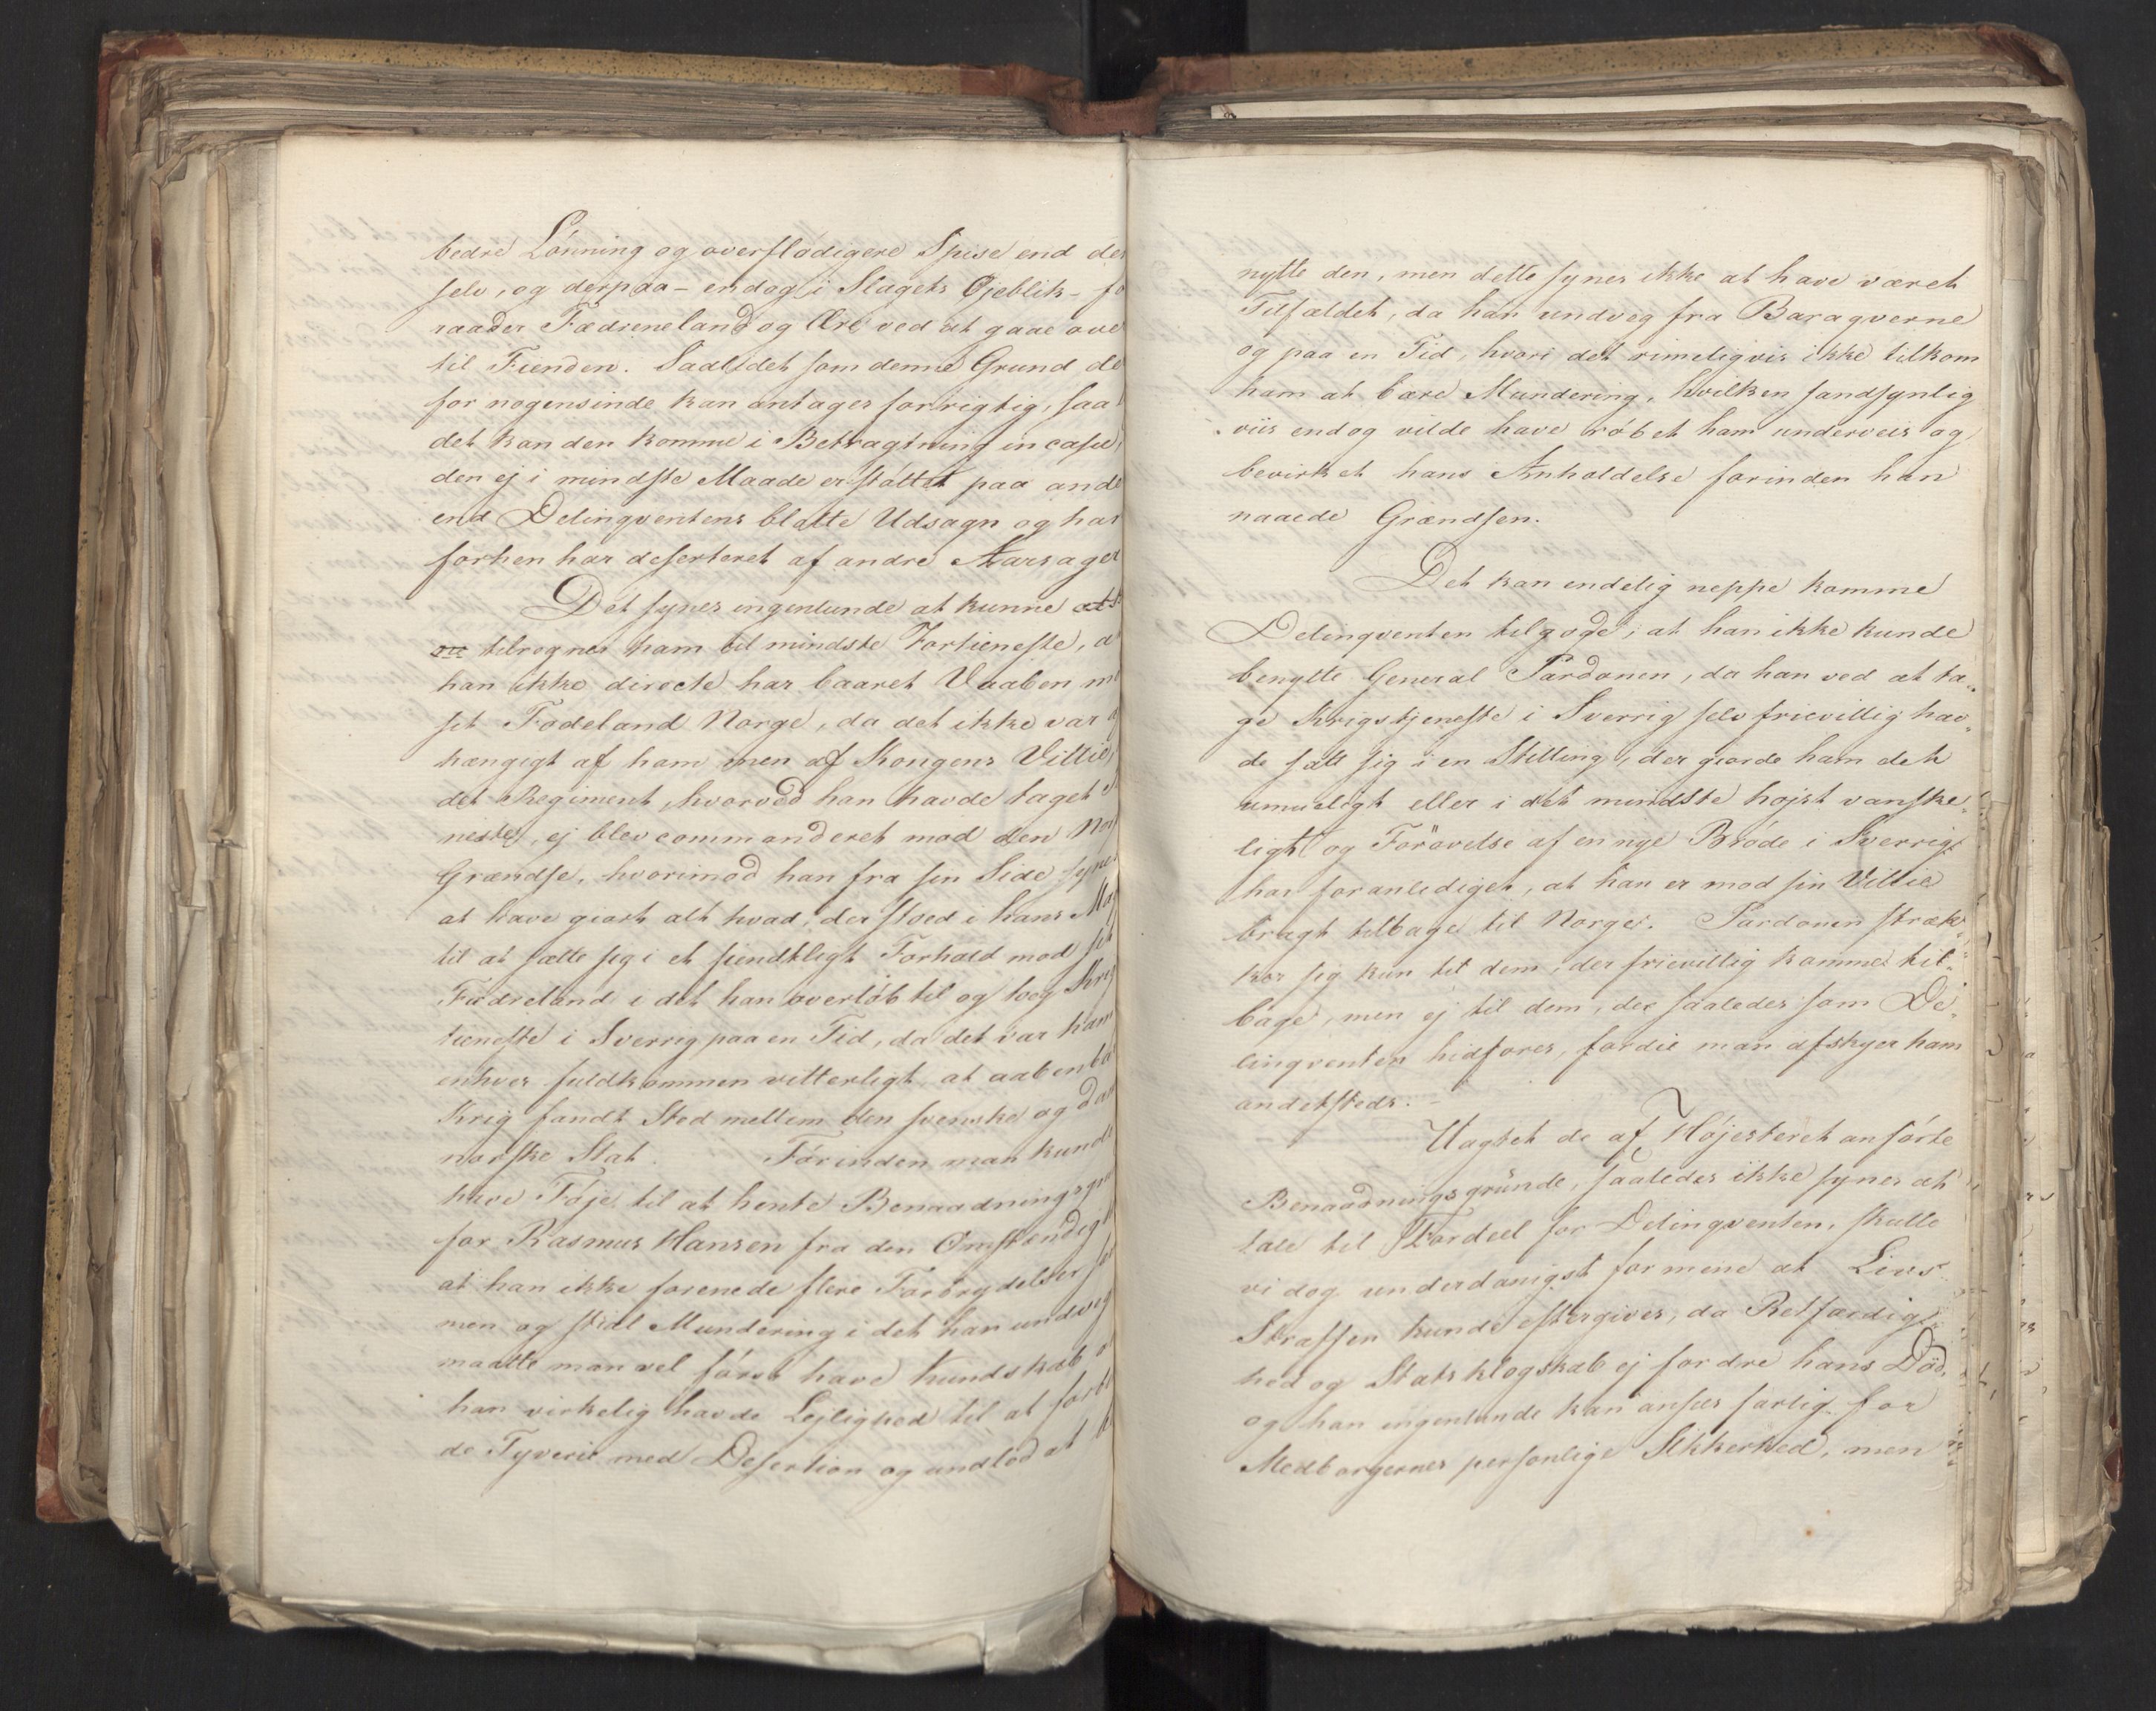 bedre Lönning og overflödigere Spise end de
selv, og derpaa - endog i Slagets Øjeblik - fo
raader Fædreneland og Ære ved at gaae ove
til Fienden. Saalidet som denne Grund de
for nogensinde kan antages for rigtig, saa
det kan den komme i Betragtning in casu,
den ej i mindste Maade er støttet paa ande
end Delinqventens blotte Udsagn og han
forhen har deserteret af andre Aarsager
Det synes ingenlunde at kunne
tilregnes ham til mindste Fortieneste, a
han ikke directe har baaret Vaaben mo
sit Fødeland Norge, da det ikke var a
hængigt af ham men af Kongens Villie,
det Regiment, hvorved han havde taget
neste, ej blev commanderet mod den Nor
Grændse, hvorimod han fra sin Side synes
at have giort alt hvad, der stoed i hans Mag
til at sætte sig i et fiendtligt Forhold mod sit
Fædreland i det han overløb til og tog Krigs
tieneste i Sverrig paa en Tid, da det var ham
enhver fuldkommen vitterligt at aabenba
Krig fandt Sted mellem den svenske og dan
norske Stat. Förinden man kunde
have Föje til at hente Benaadningsgru
for Rasmus Hansen fra den Omstændig
at han ikke forenede flere Forbrydelser sa
men og stial Mundering i det han undveg
maatte man vel först have Kundskab o
han virkelig havde Lejlighed til at forbi
de Tyverie med Desertion og undlod at be
nytte den, men dette synes ikke at have været
Tilfældet, da han undveg fra Baraqverne
og paa en Tid, hvori det rimeligvis ikke tilkom
ham at bære Mundering, hvilken sandsynlig
viis endog vilde have röbet ham underveis og
bevirket hans Anholdelse forinden han
naaede Grændsen.
Det kan endelig neppe komme
Delinqventen tilgode, at han ikke kunde
benytte General Pardonen, da han ved at ta„
ge Krigstjeneste i Sverrig selv frievillig hav„
de satt sig i en Stilling, der giorde ham det
umueligt eller i det mindste højst vanske„
ligt og Förövelse af en nye Bröde i Sverrig
har foranlediget, at han er mod sin Villie
bragt tilbage til Norge. Pardonen stræk„
ker sig kun til dem, der frievillig kommer til„
bage, men ej til dem, der saaledes som De„
linqventen hidföres, fordie man afskyer ham
andetsteds.
Uagtet de af Höjesteret anförte
Benaadningsgrunde, saaledes ikke synes at
tale til Fordeel for Delinqventen, skulle
vi dog underdanigst formene at Livs
Straffen kunde eftergives, da Retfærdig„
hed og Statsklogskab ej fordre hans Död,
og han ingenlunde kan ansees farlig for
Medborgernes personlige Sikkerhed, men